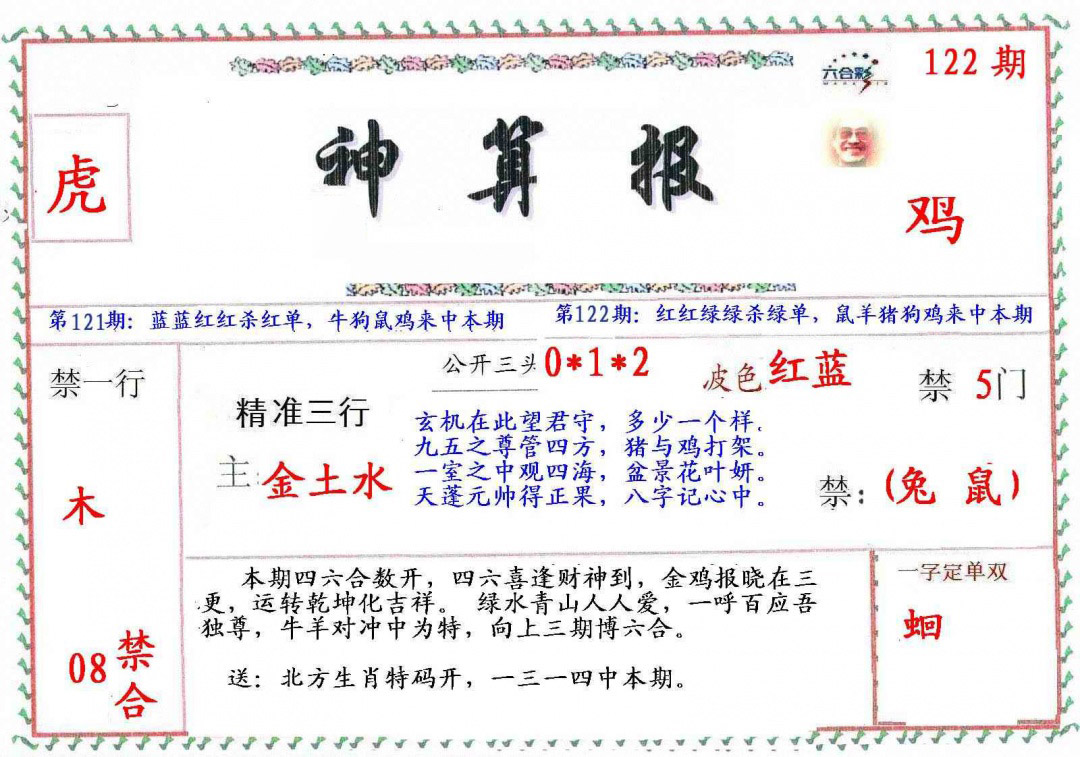 122 期
六合彩
神算报
虎
鸡
第121期：蓝蓝红红杀红单，牛狗鼠鸡来中本期
第122期：红红绿绿杀绿单，鼠羊猪狗鸡来中本期
禁一行
木
08 禁合
公开三头 0*1*2
波色 红蓝
禁 5门
精准三行
主: 金土水
玄机在此望君守，多少一个样。
九五之尊管四方，猪与鸡打架。
一室之中观四海，盆景花叶妍。
天蓬元帅得正果，八字记心中。
禁：(兔 鼠)
本期四六合数开，四六喜逢财神到，金鸡报晓在三
更，运转乾坤化吉祥。 绿水青山人人爱，一呼百应吾
独尊，牛羊对冲中为特，向上三期博六合。
送：北方生肖特码开，一三一四中本期。
一字定单双
蛔